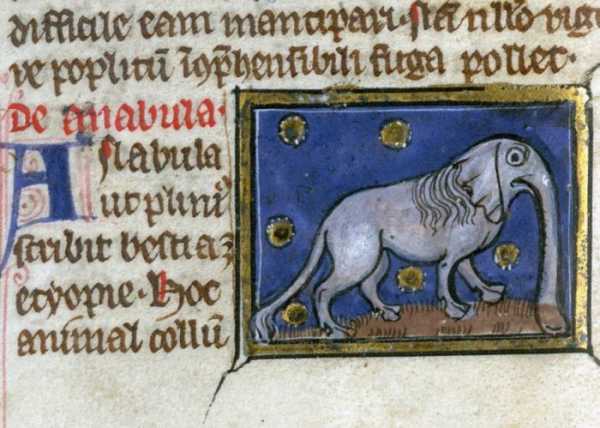 difficile eam mancipari. Nā illo vigo
re poplitū īcōp̄hensibili fuga pollet.
De anabula.
ANabula
ut plini⁹
scribit bestia ē
etyopie. Hoc
animal collū